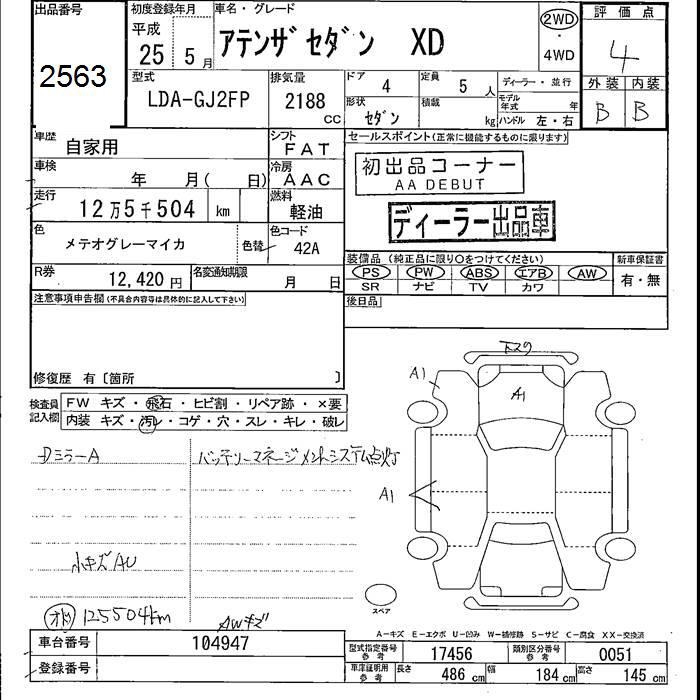 出品番号
2563
初度登録年月
平成
25 5月
車名・グレード
アテンザセダン XD
2WD
・
4WD
評価点
4
外装 内装
B B
型式
LDA-GJ2FP
排気量
2188
CC
ドア 4
定員 5人
形状 セダン
積載 kg
ディーラー・並行
モデル年式 年
ハンドル 左・右
車歴 自家用
シフト FAT
車検 年 月( 日)
冷房 AAC
走行 12万5千504 km
燃料 軽油
色 メテオグレーマイカ
色替
色コード 42A
R券 12,420円
名変通知期限 月 日
セールスポイント(正常に機能するものに限ります)
初出品コーナー
AA DEBUT
ディーラー出品車
装備品(純正品に限り○をつけてください)
新車保証書
PS PW ABS エアB AW
SR ナビ TV カワ
有・無
後日品
注意事項申告欄(不具合内容等は具体的に記入して下さい)
修復歴 有〔箇所 〕
検査員記入欄
FW キズ・飛石・ヒビ割・リペア跡・×要
内装 キズ・汚レ・コゲ・穴・スレ・キレ・破レ
DミラーA
バッテリーマネージメントシステム点灯
小キズAU
オド 125504km
AWキズ
下スク
A1
A1
A1
スペア
A-キズ E-エクボ U-凹み W-補修跡 S-サビ C-腐食 XX-交換済
車台番号 104947
登録番号
型式指定番号 参考 17456
類別区分番号 参考 0051
車庫証明用 参考
長さ 486cm
幅 184cm
高さ 145cm